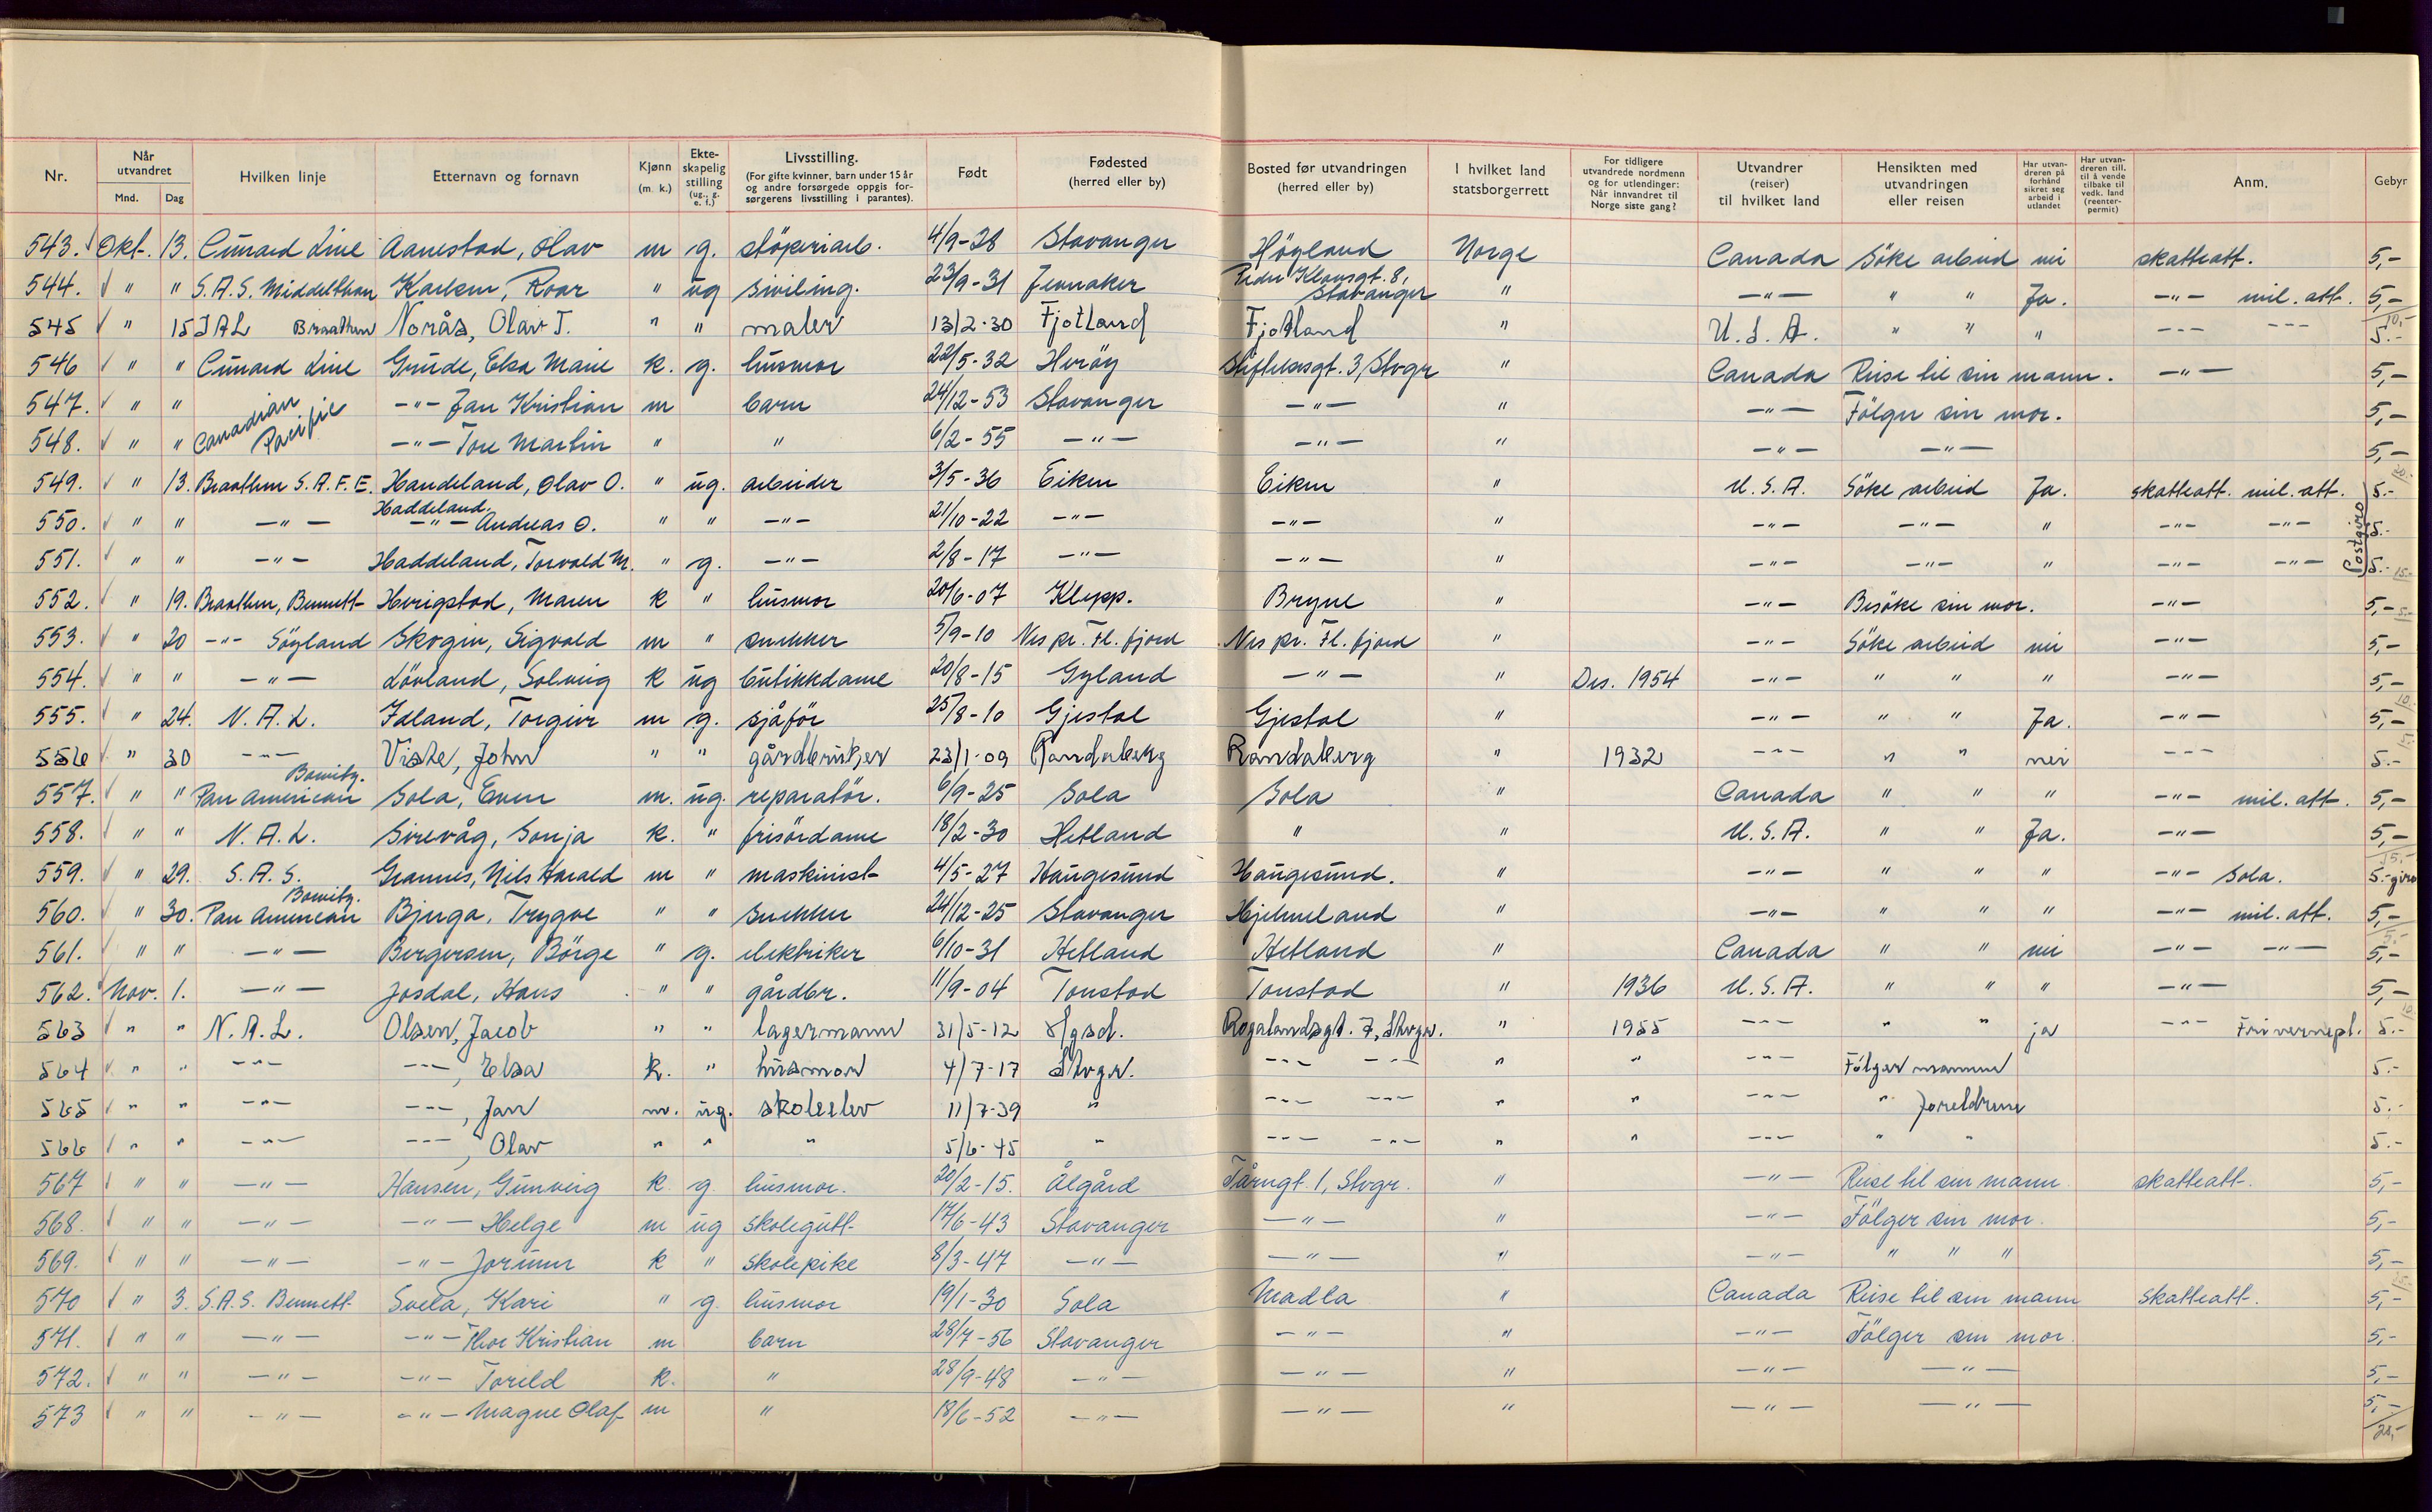 Nr. Når utvandret Mnd. Dag Hvilken linje Etternavn og fornavn Kjønn (m. k.) Ekteskapelig stilling (ug., g. e. f.) Livsstilling. (For gifte kvinner, barn under 15 år og andre forsørgede oppgis forsørgerens livsstilling i parantes). Født Fødested (herred eller by) Bosted før utvandringen (herred eller by) I hvilket land statsborgerrett For tidligere utvandrede nordmenn og for utlendinger: Når innvandret til Norge siste gang? Utvandrer (reiser) til hvilket land Hensikten med utvandringen eller reisen Har utvandreren på forhånd sikret seg arbeid i utlandet Har utvandreren till. til å vende tilbake til vedk. land (reenterpermit) Anm. Gebyr
543. Okt. 13. Cunard Line Aanestad, Olav m g. støperiarb. 4/9-28 Stavanger Høyland Norge Canada Söke arbeid nei skatteatt. 5,-
544. " " S.A.S. Middelthon Karlsen, Roar " ug siviling. 23/9-31 Jevnaker Peder Klowsgt. 8, Stavanger " -"- " " Ja. -"- mil. att. 5,-
545 " 15 IAL Braathen Norås, Olav T. " " maler 13/2-30 Fjotland Fjotland " U.S.A. " " " -"- -"- 5.-
546 " " Cunard Line Grude, Elsa Marie k. g. husmor 22/5-32 Herøy 3, Stvgr " Canada Reise til sin mann. -"- 5,-
547. " " Canadian Pacific -"- Jan Kristian m barn 24/12-53 Stavanger -"- " -"- Følger sin mor. 5,-
548. " " -"- Tore Martin " " 6/2-55 -"- -"- " -"- -"- 5,-
549. " 13. Braathen S.A.F.E. Handeland, Olav O. " ug. arbeider 3/5-36 Eiken Eiken " U.S.A. Söke arbeid Ja. skatteatt. mil. att. 5.-
550. " " -"- Haddeland. -"- Andreas O. " " -"- 21/10-22 -"- -"- " -"- -"- " -"- -"- Postgiro 5.-
551. " " -"- Haddeland, Torvald M. " g. -"- 2/8-17 -"- -"- " -"- -"- " -"- -"- 5.-
552. " 19. Braathen, Bennett Herigstad, Maren k " husmor 20/6-07 Klepp. Bryne " -"- Besøke sin mor. -"- 5,-
553. " 20 -"- Söyland Skogen, Sigvald m " snekker 5/9-10 Nes pr. Fl. fjord Nes pr. Fl. fjord " -"- Söke arbeid nei -"- 5,-
554. " " -"- Lövland, Solveig k ug butikkdame 20/8-15 Gyland -"- " Des. 1954 -"- " " " -"- 5,-
555. " 24. N.A.L. Idland, Torgeir m g. sjåför 25/8-10 Gjestal Gjestal " -"- " " Ja. -"- 5,-
556 " 30 -"- Viste, John " " gårdbruker 23/1-09 Randaberg Randaberg " 1932 -"- " " nei -"- 5.-
557. " " Pan American Bowitz. Sola, Even m. ug. reparatör. 6/9-25 Sola Sola " Canada " " " -"- mil. att. 5,-
558. " " N.A.L. Sirevåg, Sonja k. " frisördame 18/2-30 Hetland " " U.S.A. " " Ja. -"- 5,-
559. " 29. S.A.S. Grannes, Nils Harald m " maskinist 4/5-27 Haugesund Haugesund. " -"- " " " -"- Sola. 5.- giro
560. " 30. Pan American Bowitz. Bjerga, Trygve " " snekker 24/12-25 Stavanger Hjelmeland " -"- " " " -"- mil. att. 5,-
561. " " -"- Bergersen, Börge " g. elektriker 6/10-31 Hetland Hetland " Canada " " nei -"- -"- 5,-
562. Nov. 1. -"- Josdal, Hans " " gårdbr. 11/9-04 Tonstad Tonstad " 1936 U.S.A. " " " -"- 5,-
563 " " N.A.L. Olsen, Jacob " " lagermann 31/5-12 Rogalandsgt. 7, Stvgr. " 1955 -"- " " ja -"- Fri vernepl. 5.-
564 " " -"- -"-, Elsa k. " husmor 4/7-17 Stvgr. -"- -"- " " -"- Følger mannen 5.-
565 " " -"- -"-, Jan m. ug. skoleelev 11/7-39 " -"- -"- " " -"- " foreldrene 5.-
566 " " -"- -"-, Olav " " " 5/6-45 " -"- -"- " " -"- " " 5.-
567 " " -"- Hansen, Gunveig k g. husmor. 20/2-15. Ålgård Tårngt. 1, Stvgr. " -"- Reise til sin mann skatteatt. 5,-
568. " " -"- -"- Helge m ug skolegutt 17/6-43 Stavanger -"- " -"- Følger sin mor. 5,-
569. " " -"- -"- Jorunn k " skolepike 8/3-47 -"- -"- " -"- " " " 5,-
570 " 3. S.A.S. Bennett Svela, Kari " g. husmor 19/1-30 Sola Madla " Canada Reise til sin mann skatteatt. 5,-
571. " " -"- -"- Thor Kristian m barn 28/7-56 Stavanger -"- " -"- Følger sin mor. 5,-
572. " " -"- -"- Torild k. " 28/9-48 -"- -"- " -"- -"- 5,-
573 " " -"- -"- Magne Olaf m " 18/6-52 -"- -"- " -"- -"- 5,-